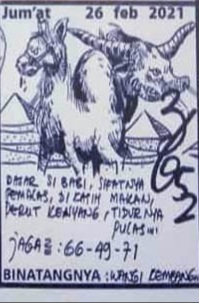 Jum'at 26 feb 2021
DASAR SI BABI, SIFATNYA
PEMALAS, DI KASIH MAKAN,
PERUT KENYANG, TIDURNYA
PULAS!!!
JAGA2 : 66-49-71
BINATANGNYA : WANGI